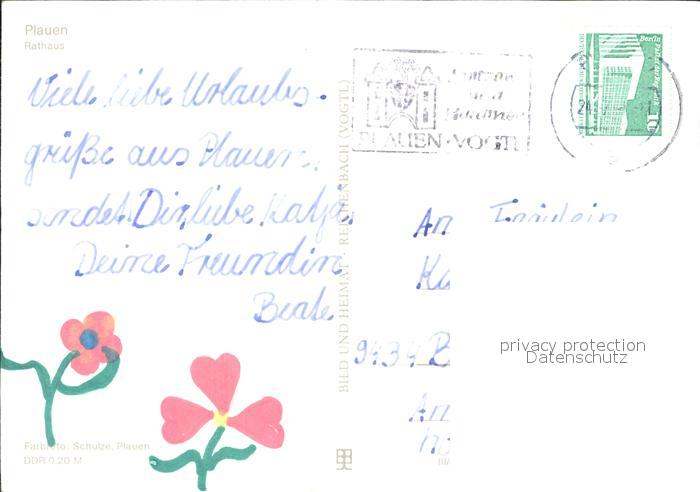 Plauen
Rathaus
Viele liebe Urlaubs-
grüße aus Plauen,
sendet Dir, liebe Katja,
Deine Freundin
Beate
Farbfoto: Schulze, Plauen
DDR 0,20 M
BILD UND HEIMAT REICHENBACH (VOGTL)
PLAUEN · VOGTL
Berlin
10
An Fräulein
Ka
9934 B
privacy protection
Datenschutz